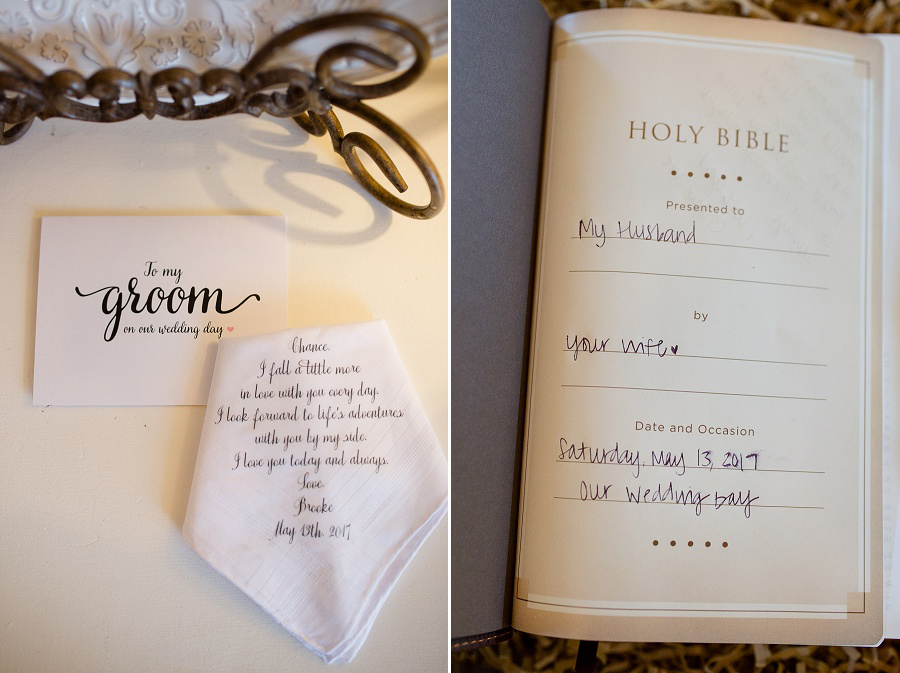 To my
groom
on our wedding day
Chance,
I fall a little more
in love with you every day.
I look forward to life's adventures
with you by my side.
I love you today and always.
Love,
Brooke
May 13th, 2017
HOLY BIBLE
Presented to
My Husband
by
your wife
Date and Occasion
Saturday, May 13, 2017
Our Wedding Day